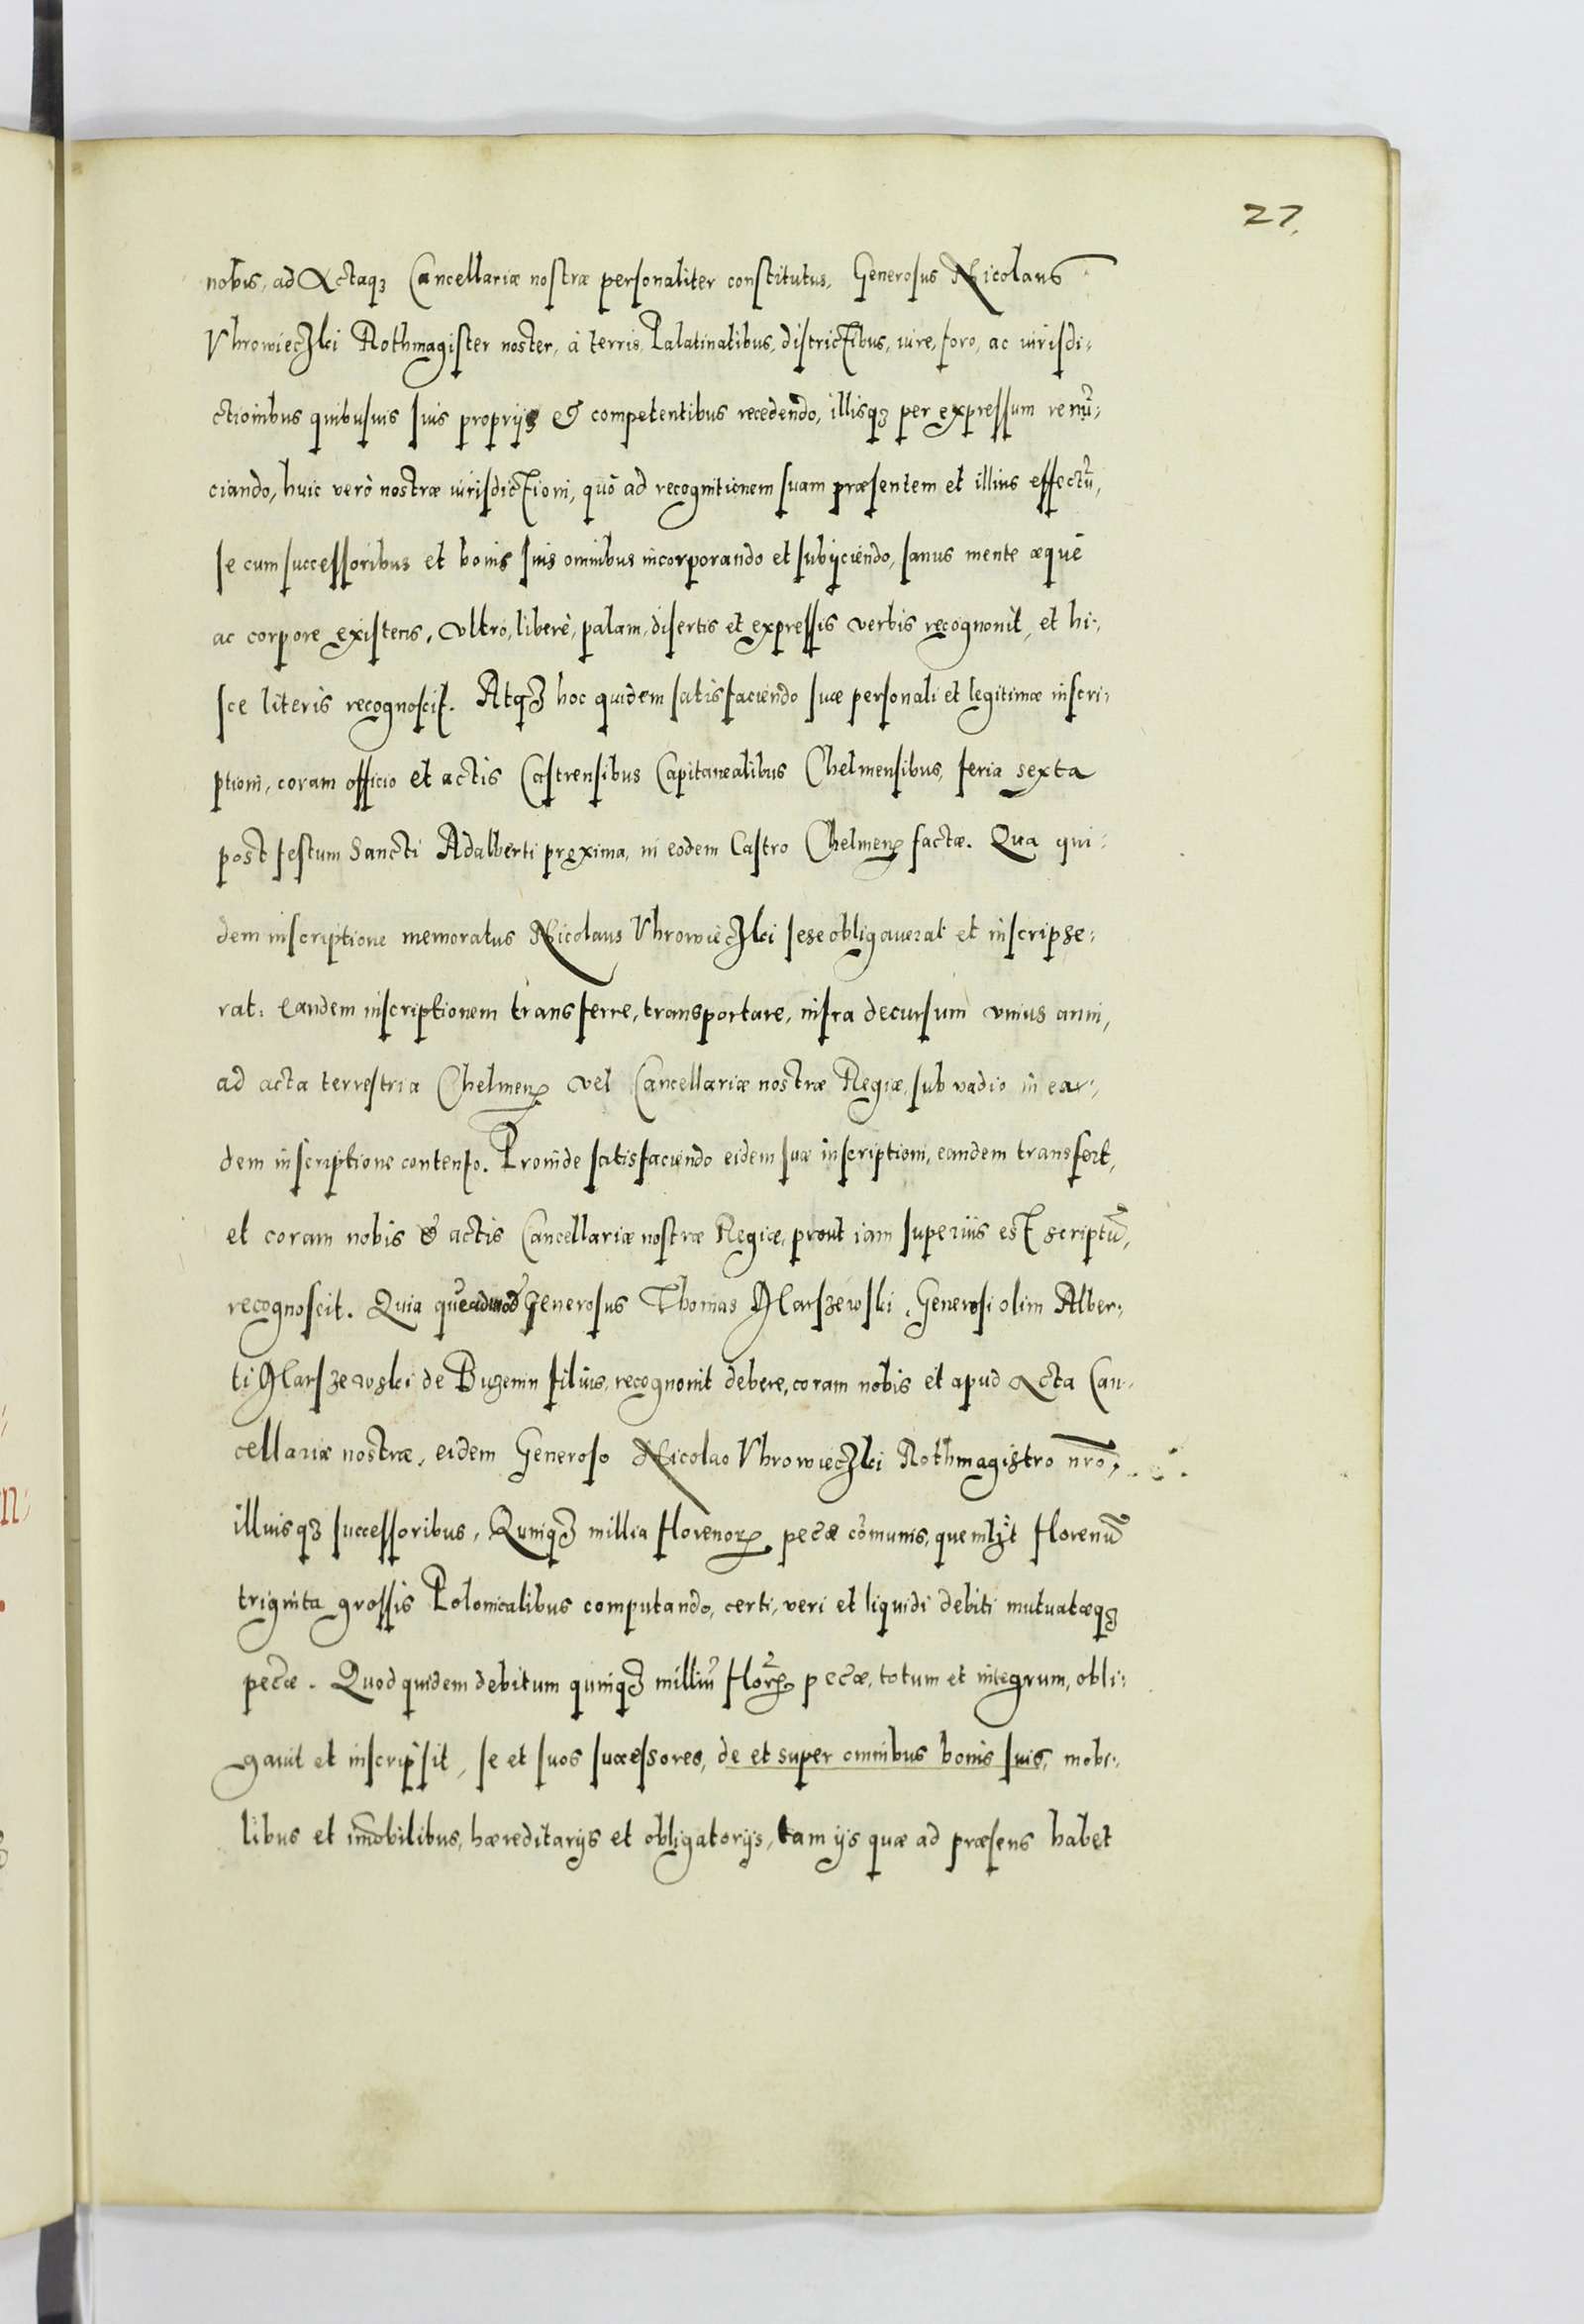 27.
nobis, ad Actaqꝫ Cancellariæ nostræ personaliter constitutus, Generosus Nicolaus
Vhrowieczki Rothmagister noster, à terris, Palatinatibus, districtibus, iure, foro, ac iurisdi:
ctionibus quibusuis suis proprijs & competentibus recedendo, illisqꝫ per expressum renũ:
ciando, huic verò nostræ iurisdictioni, quò ad recognitionem suam præsentem et illius effectũ,
se cum successoribus et bonis suis omnibus incorporando et subijciendo, sanus mente æquè
ac corpore existens, vltrò, liberè, palam, disertis et expressis verbis recognouit, et hi:
sce literis recognoscit. Atqꝫ hoc quidem satisfaciendo suæ personali et legitimæ inscri:
ptioni, coram officio et actis Castrensibus Capitanealibus Chelmensibus, feria sexta
post festum Sancti Adalberti proxima, in eodem Castro Chelmenꝭ factæ. Qua qui:
dem inscriptione memoratus Nicolaus Vhrowieczki sese obligauerat et inscripse:
rat: eandem inscriptionem transferre, transportare, infra decursum vnius anni,
ad acta terrestria Chelmenꝭ vel Cancellariæ nostræ Regiæ, sub vadio in ea:
dem inscriptione contento. Proinde satisfaciendo eidem suæ inscriptioni, eandem transfert,
et coram nobis & actis Cancellariæ nostræ Regiæ, prout iam superius est scriptũ,
recognoscit. Quia quẽadmod̃ Generosus Thomas Marszewski, Generosi olim Alber:
ti Marszewski de Buzenin filius, recognouit debere, coram nobis et apud Acta Can:
cellariæ nostræ, eidem Generoso Nicolao Vhrowieczki Rothmagistro nr̃o,
illiusqꝫ successoribus, Quinqꝫ millia florenorꝝ pec̃æ cõmunis, quemlꝫt florenũ
triginta grossis Polonicalibus computando, certi, veri et liquidi debiti mutuatæqꝫ
pec̃æ. Quod quidem debitum quinqꝫ milliũ florꝝ pec̃æ, totum et integrum, obli:
gauit et inscripsit, se et suos successores, de et super omnibus bonis suis, mobi:
libus et im̃obilibus, hæreditarijs et obligatorijs, tam ijs quæ ad præsens habet